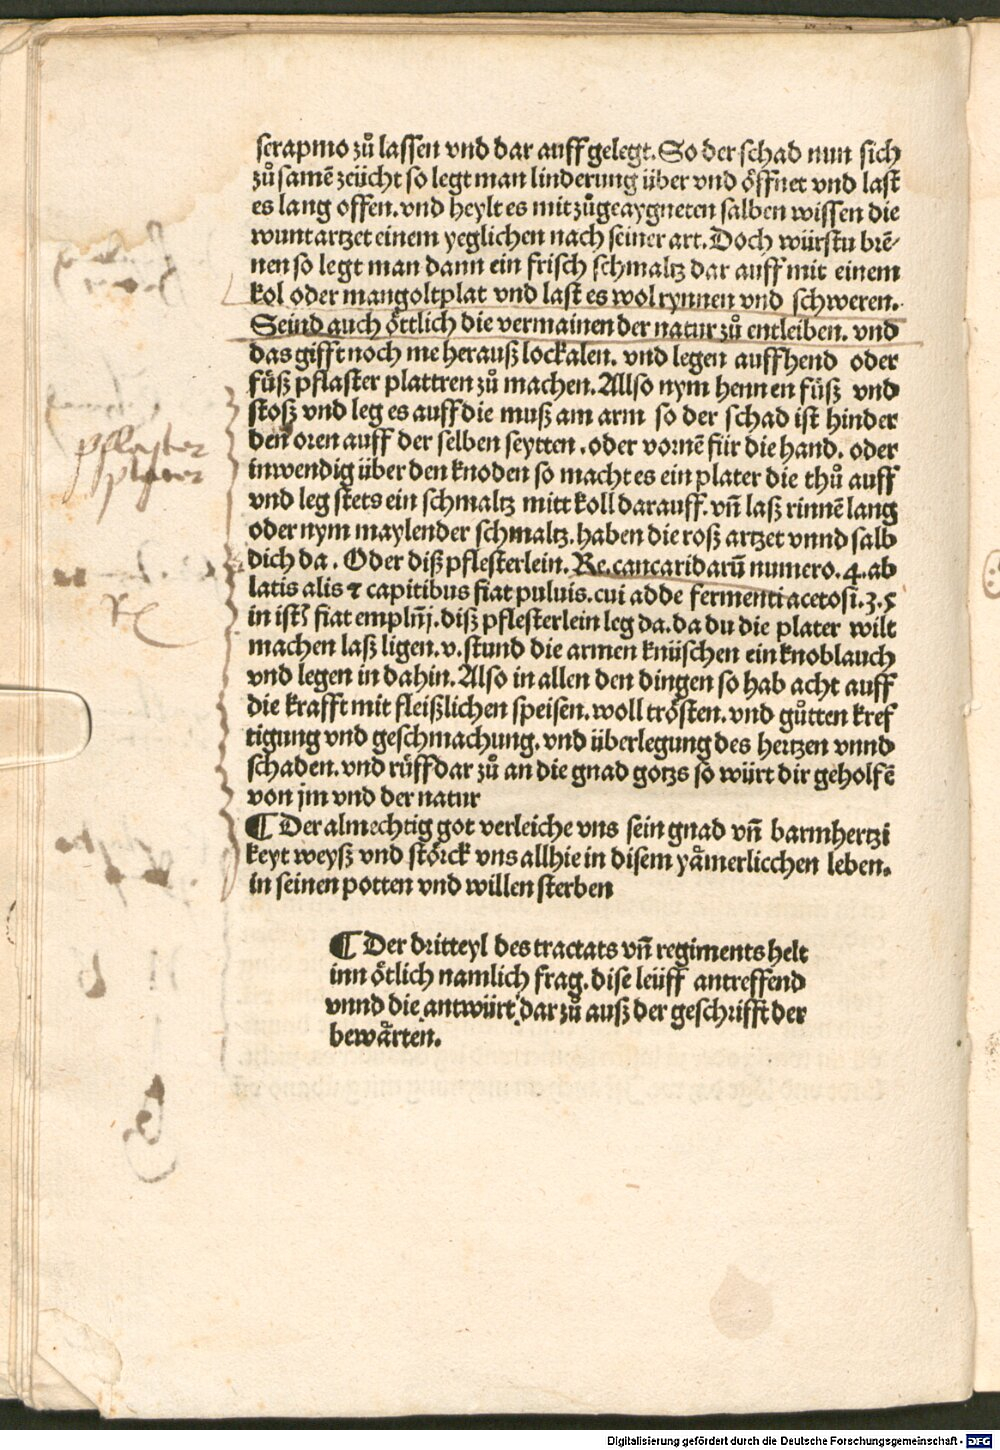 serapino zů lassen vnd dar auff gelegt. So der schad nun sich
zů samẽ zeücht so legt man linderung über vnd öffnet vnd last
es lang offen. vnd heylt es mit zůgeaygneten salben wissen die
wuntartzet einem yeglichen nach seiner art. Doch würstu brē-
nen so legt man dann ein frisch schmaltz dar auff mit einem
kol oder mangoltplat vnd last es wol rynnen vnd schweren.
Seind auch öttlich die vermainen der natur zů entleiben. vnd
das gifft noch me herauß lockalen. vnd legen auff hend oder
füß pflaster plattren zů machen. Allso nym hennen füß vnd
stoß vnd leg es auff die muß am arm so der schad ist hinder
den oren auff der selben seytten. oder vornẽ für die hand. oder
inwendig über den knoden so macht es ein plater die thů auff
vnd leg stets ein schmaltz mitt koll darauff. vñ laß rinnẽ lang
oder nym maylender schmaltz. haben die roß artzet vnnd salb
dich da. Oder diß pflesterlein. Re. cancaridarū numero. 4. ab
latis alis ⁊ capitibus fiat puluis. cui adde fermenti acetosi. 3. 5
in istꝭ fiat emplñj. diß pflesterlein leg da. da du die plater wilt
machen laß ligen. v. stund die armen knüschen ein knoblauch
vnd legen in dahin. Also in allen den dingen so hab acht auff
die krafft mit fleißlichen speisen. woll trösten. vnd gůtten kref
tigung vnd geschmachung. vnd überlegung des hertzen vnnd
schaden. vnd rüff dar zů an die gnad gotzs so würt dir geholfẽ
von jm vnd der natur
¶ Der almechtig got verleiche vns sein gnad vñ barmhertzi
keyt weyß vnd störck vns allhie in disem yämerlicchen leben.
in seinen potten vnd willen sterben
¶ Der dritteyl des tractats vñ regiments helt
inn ötlich namlich frag. dise leüff antreffend
vnnd die antwürt dar zů auß der geschrifft der
bewärten.
pflaster
plater
Digitalisierung gefördert durch die Deutsche Forschungsgemeinschaft - DFG